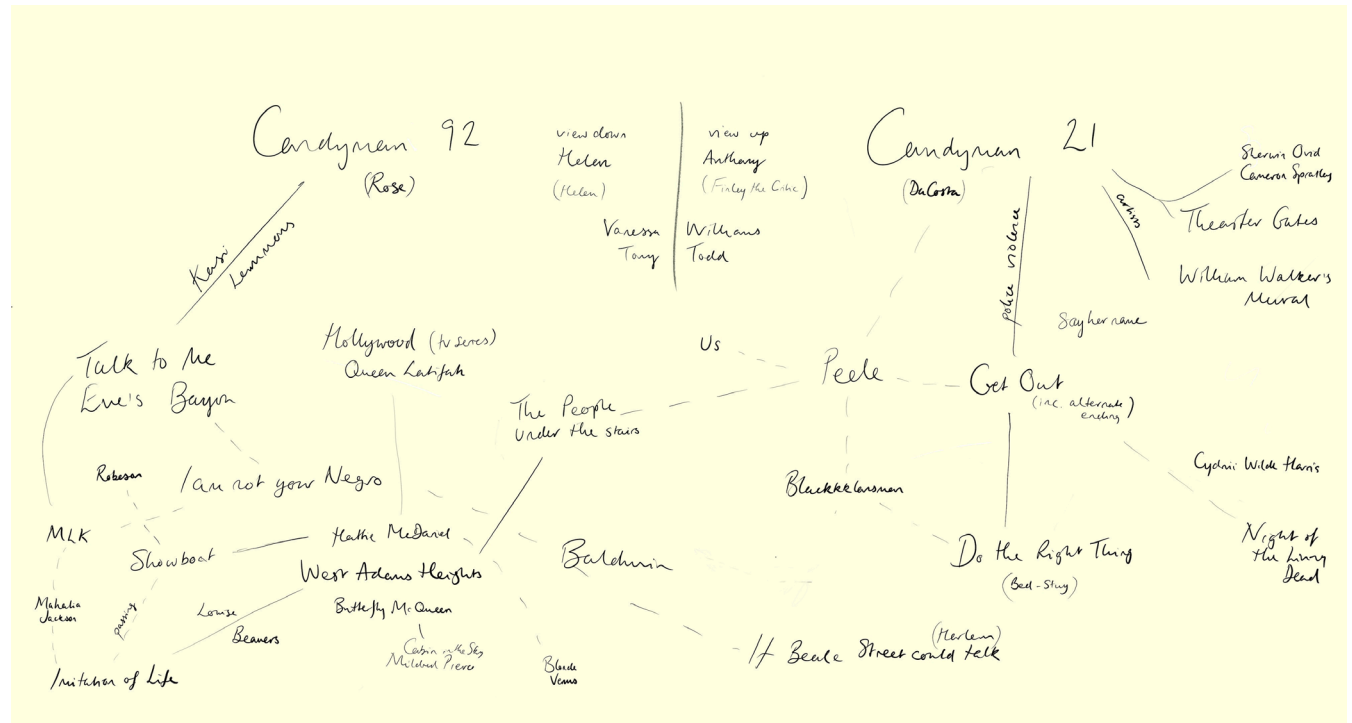 Candyman 92
(Rose)
view down
Helen
(Helen)
Vanessa
Tony
view up
Anthony
(Finley the Critic)
Williams
Todd
Candyman 21
(DaCosta)
Sherwin Ovid
Cameron Spratley
artists
Theaster Gates
William Walker's
Mural
police violence
Sayhername
Kasi
Lemmons
Talk to Me
Eve's Bayou
Hollywood (tv series)
Queen Latifah
Us
Peele
Get Out
(inc. alternate
ending)
The People
Under the stairs
Robeson
I am not your Negro
Blackkklansman
Cydnii Wilde Harris
MLK
Showboat
Hattie McDaniel
West Adams Heights
Baldwin
Do the Right Thing
(Bed-Stuy)
Night of
the Living
Dead
Mahalia
Jackson
passing
Louise
Beavers
Butterfly McQueen
Cabin in the Sky
Mildred Pierce
Blonde
Venus
(Harlem)
If Beale Street could talk
Imitation of Life